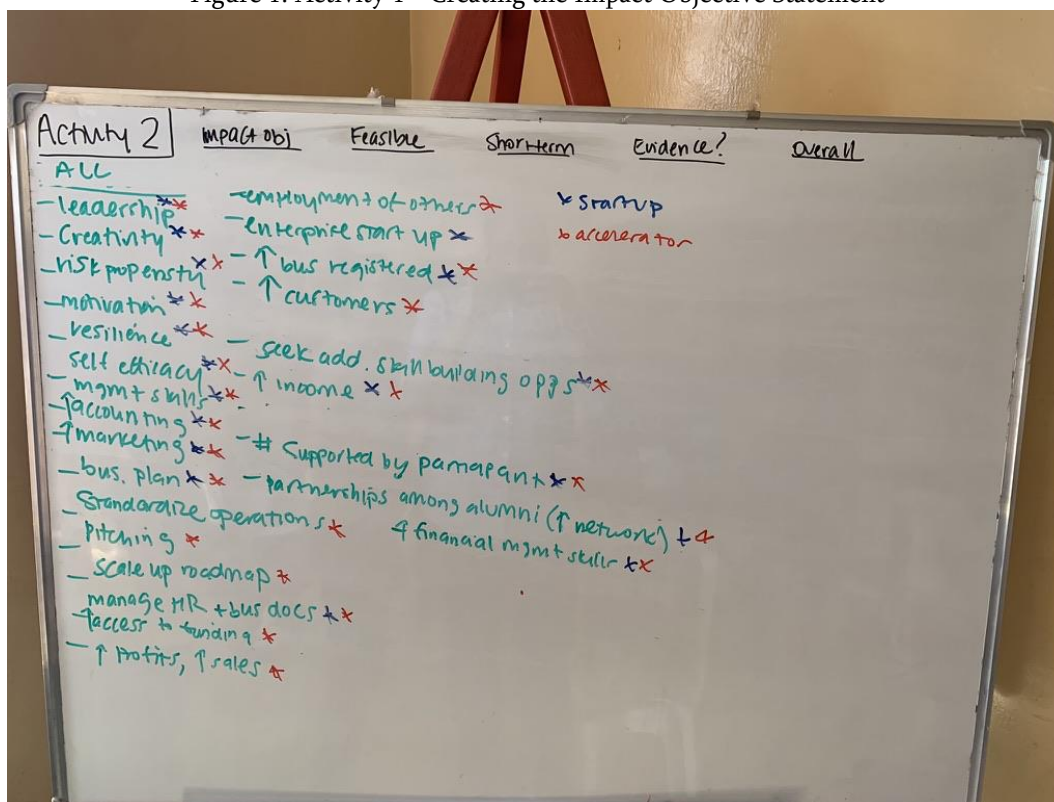 Figure 1. Activity 1 – Creating the Impact Objective Statement
Activity 2 Impact obj Feasible Short term Evidence? Overall
ALL
- leadership **
- Creativity **
- risk propensity **
- motivation **
- resilience **
self efficacy **
- mgmt skills **
- ↑ accounting **
- ↑ marketing **
- bus. plan **
- Standardize operations *
- Pitching *
- scale up roadmap *
manage HR + bus docs **
- ↑ access to funding *
- ↑ Profits, ↑ sales *
- employment of others *
- enterprise start up *
- ↑ bus registered **
- ↑ customers *
- seek add. skill building opps **
- ↑ income **
- # supported by participant **
- partnerships among alumni (↑ network) **
↑ financial mgmt skills **
* startup
* accelerator